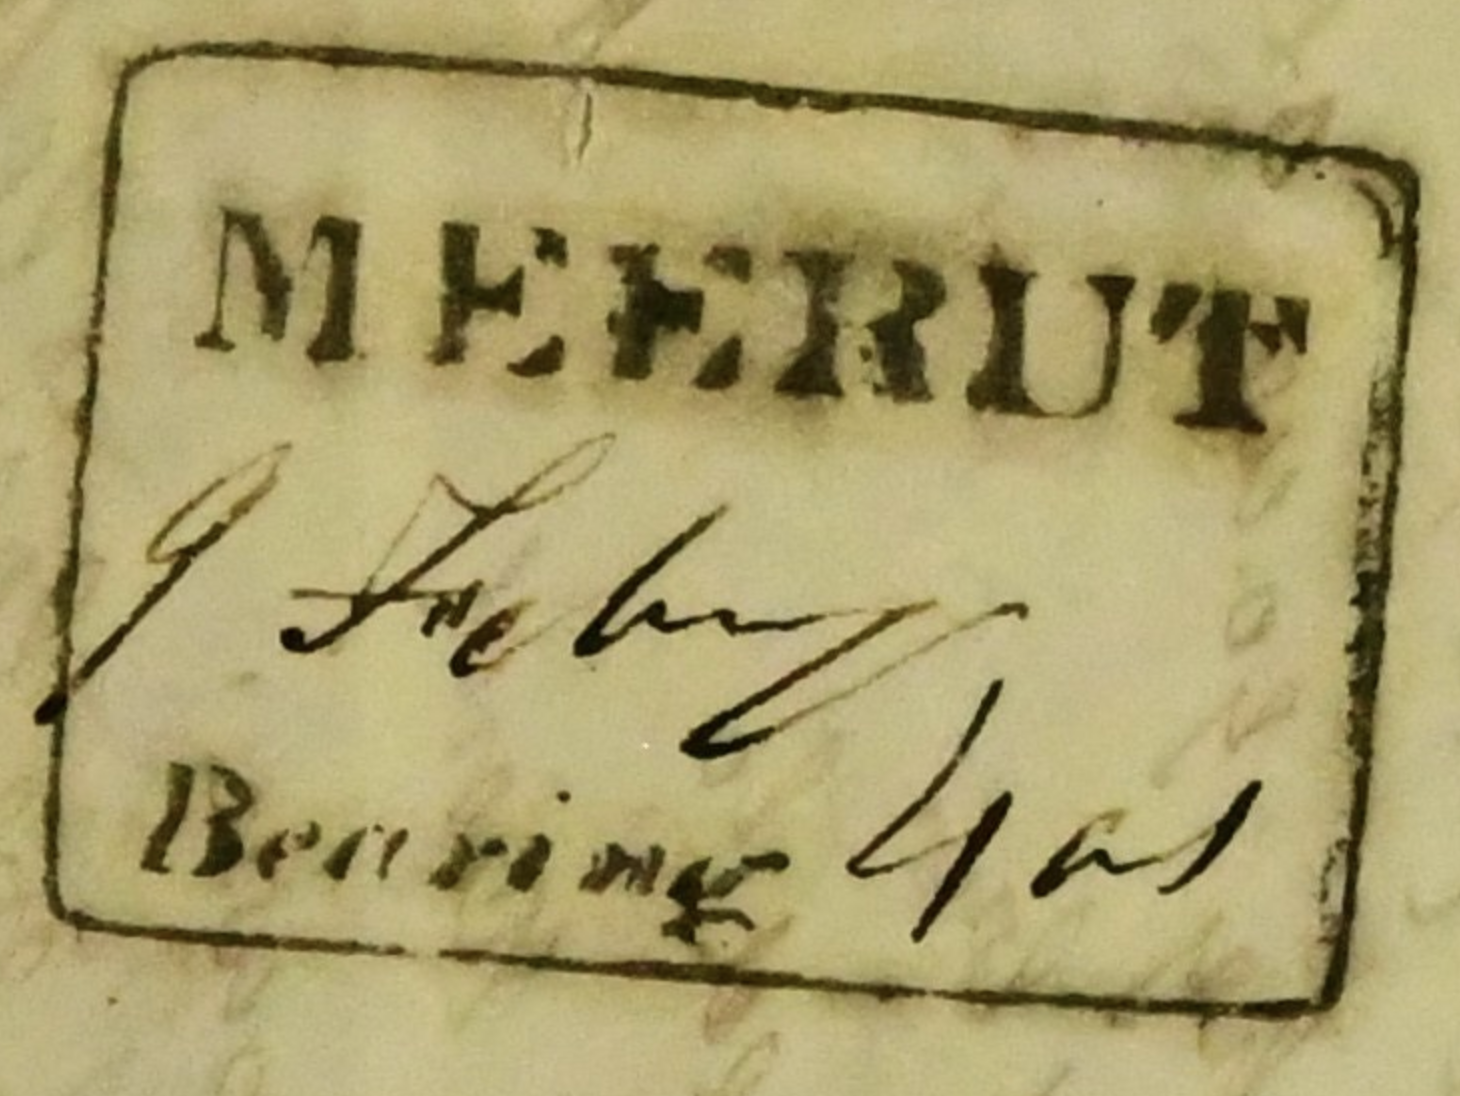 MEERUT
9 Feby
Bearing 4 as